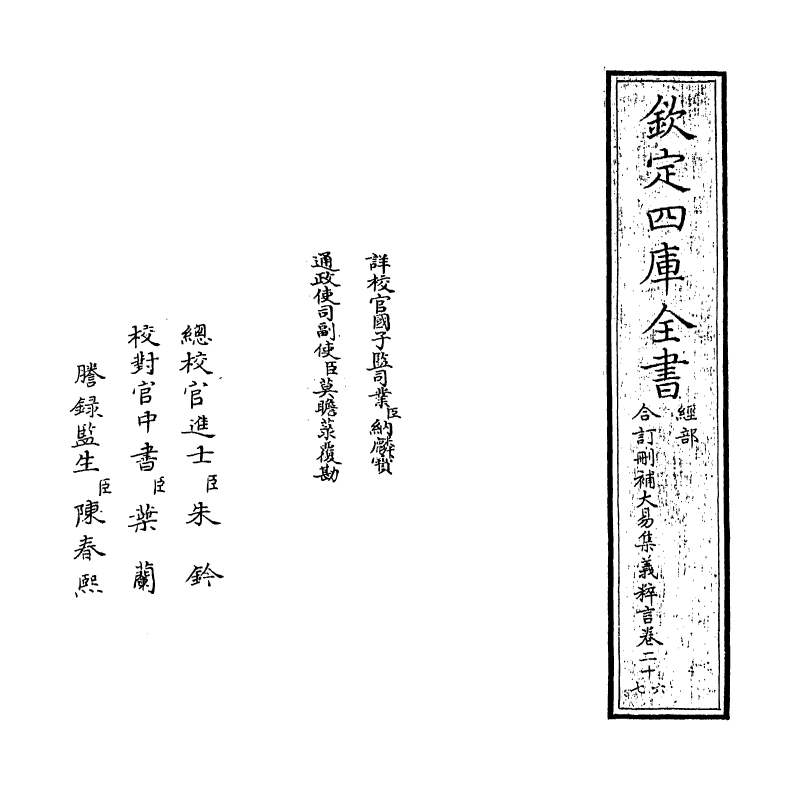 欽定四庫全書
經部
合訂刪補大易集義粹言卷二十六
七
詳校官國子監司業臣納麟寶
通政使司副使臣莫瞻菉覆勘
總校官進士臣朱鈐
校對官中書臣葉蘭
謄錄監生臣陳春熙